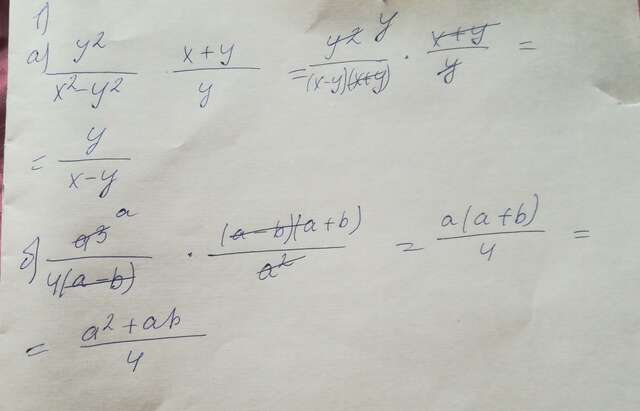 1)
а) y²/(x²-y²) · (x+y)/y = y² y/((x-y)(x+y)) · (x+y)/y =
= y/(x-y)
б) a³ a/(4(a-b)) · (a-b)(a+b)/a² = a(a+b)/4 =
= (a²+ab)/4